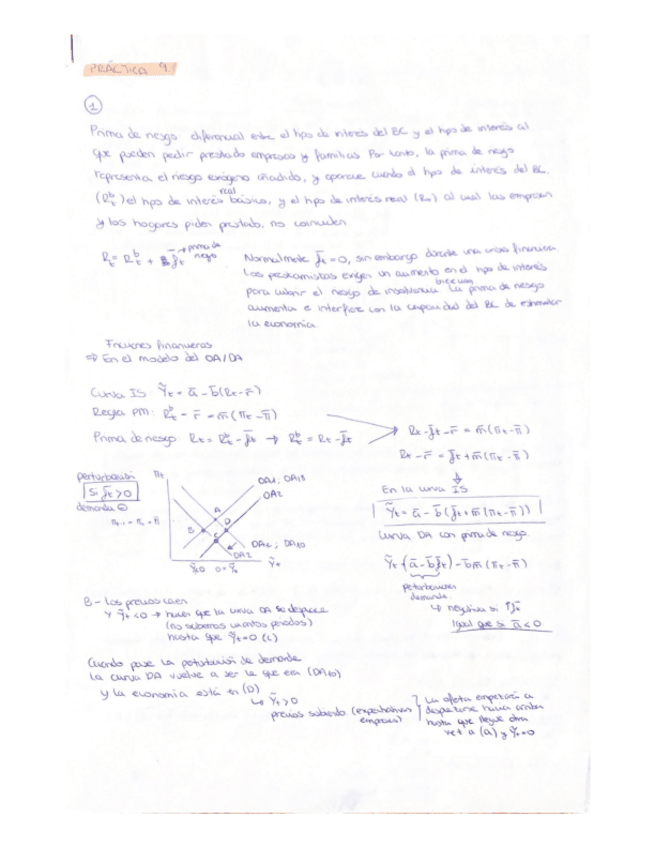 PRÁCTICA 9.
1
Prima de riesgo diferencial entre el tipo de interés del BC y el tipo de interés al
que pueden pedir prestado empresas y familias Por tanto, la prima de riesgo
representa el riesgo exógeno añadido, y aparece cuando el tipo de interés del BC,
(R̄ᵇₜ) el tipo de interés real básico, y el tipo de interés real (Rₜ) al cual las empresas
y los hogares piden prestado, no coinciden
Rₜ = Rᵇₜ + f̄ₜ → prima de riesgo
Normalmente f̄ₜ = 0, sin embargo durante una crisis financiera
Los prestamistas exigen un aumento en el tipo de interés
para cubrir el riesgo de insolvencia La prima de riesgo
aumenta e interfiere con la capacidad del BC de estimular
la economía.
Fricciones financieras
⇒ En el modelo del OA/DA
Curva IS: Ỹₜ = ā - b̄(Rₜ - r̄)
Regla PM: Rᵇₜ - r̄ = m̄(πₜ - π̄)
Prima de riesgo Rₜ = Rᵇₜ - f̄ₜ → Rᵇₜ = Rₜ - f̄ₜ
Rₜ - f̄ₜ - r̄ = m̄(πₜ - π̄)
Rₜ - r̄ = f̄ₜ + m̄(πₜ - π̄)
En la curva IS
Ỹₜ = ā - b̄(f̄ₜ + m̄(πₜ - π̄))
Curva DA con prima de riesgo
Ỹₜ = (ā - b̄f̄ₜ) - b̄m̄(πₜ - π̄)
Perturbación
demanda
↳ negativa si ↑f̄ₜ
Igual que si ā < 0
perturbación
Si f̄ₜ > 0
demanda ⊖
πₜ
A
B
C
D
OA2
DA2
Ỹₜ
B - Los precios caen
y Ỹₜ < 0 → hacen que la curva OA se desplace
(no sabemos cuántos periodos)
hasta que Ỹₜ = 0 (C)
Cuando pase la perturbación de demanda
la curva DA vuelve a ser la que era (DA10)
y la economía está en (D)
↳ Ỹₜ > 0
precios subiendo (expectativas
empresas)
La oferta empezará a
desplazarse hacia arriba
hasta que llegue otra
vez a (A) y Ỹₜ = 0